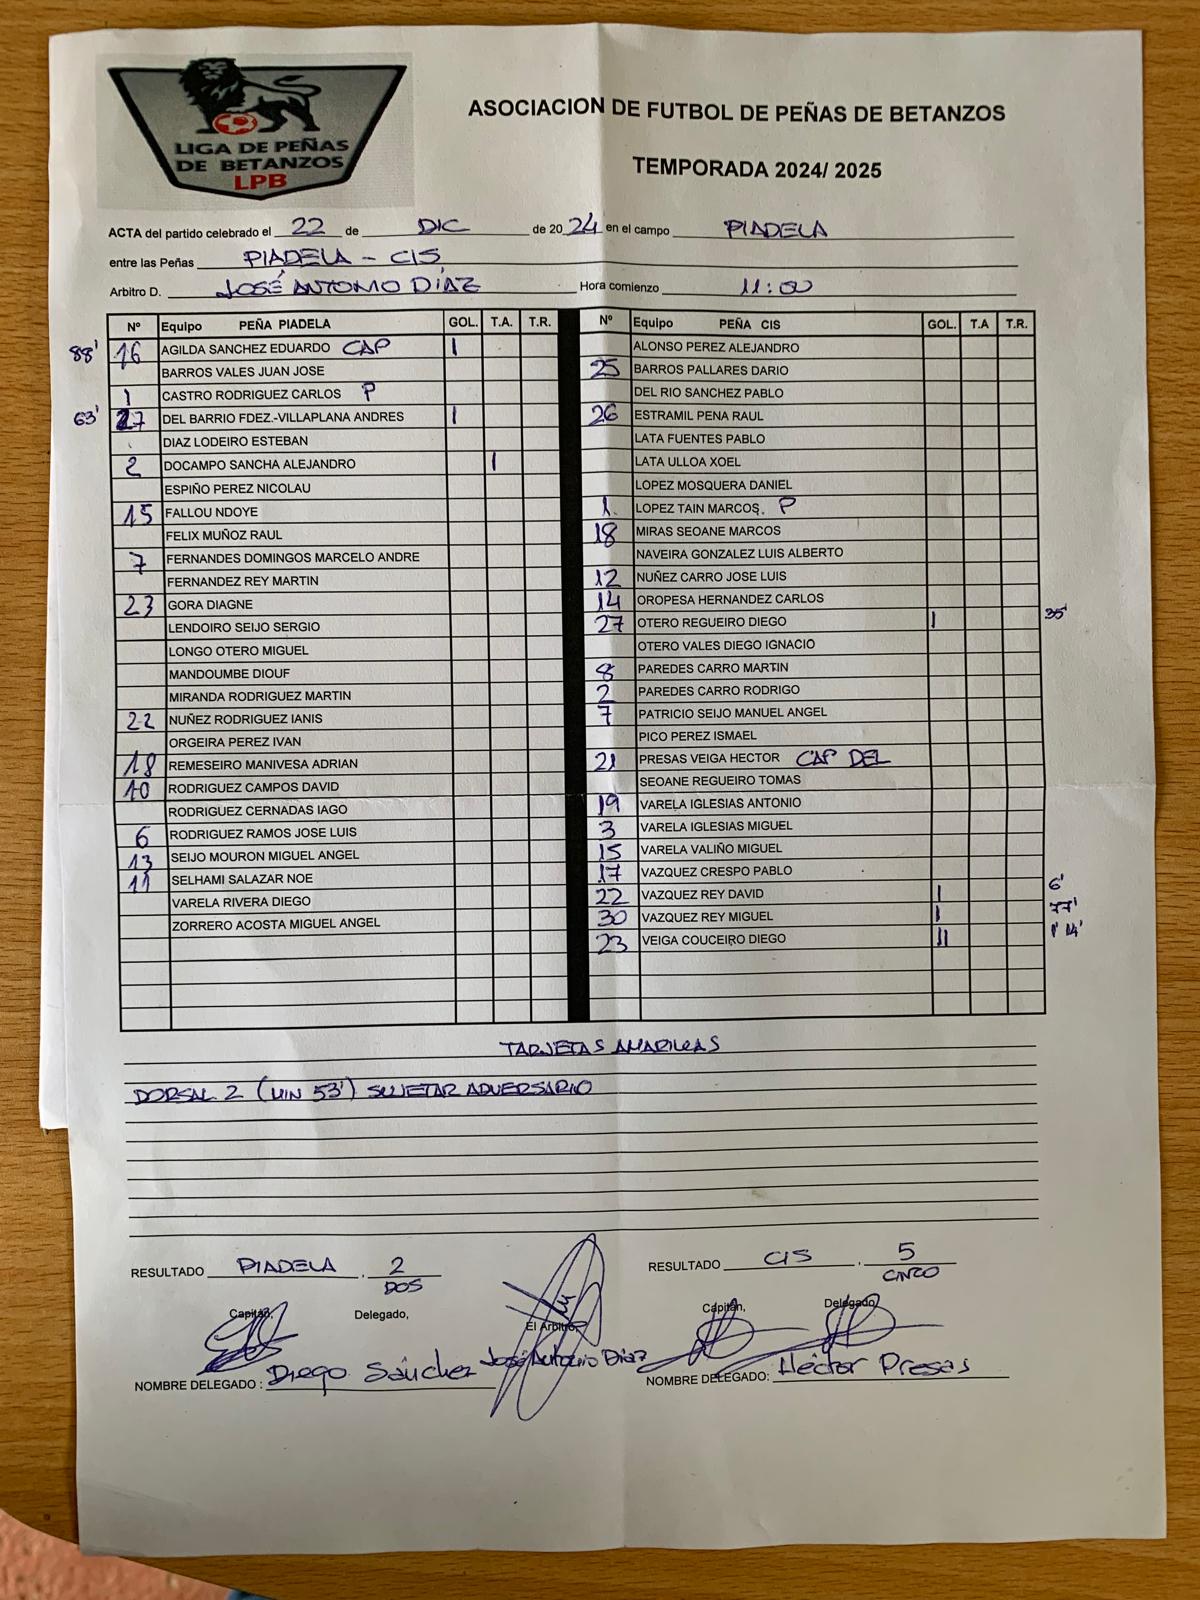 LIGA DE PEÑAS
DE BETANZOS
LPB
ASOCIACION DE FUTBOL DE PEÑAS DE BETANZOS
TEMPORADA 2024/ 2025
ACTA del partido celebrado el 22 de DIC de 2024 en el campo PIADELA
entre las Peñas PIADELA - CIS
Arbitro D. JOSÉ ANTONIO DÍAZ Hora comienzo 11:00
Nº Equipo PEÑA PIADELA GOL. T.A. T.R. Nº Equipo PEÑA CIS GOL. T.A T.R.
88' 16 AGILDA SANCHEZ EDUARDO CAP I ALONSO PEREZ ALEJANDRO
BARROS VALES JUAN JOSE 25 BARROS PALLARES DARIO
1 CASTRO RODRIGUEZ CARLOS P DEL RIO SANCHEZ PABLO
63' 27 DEL BARRIO FDEZ.-VILLAPLANA ANDRES I 26 ESTRAMIL PENA RAUL
DIAZ LODEIRO ESTEBAN LATA FUENTES PABLO
2 DOCAMPO SANCHA ALEJANDRO I LATA ULLOA XOEL
ESPIÑO PEREZ NICOLAU LOPEZ MOSQUERA DANIEL
15 FALLOU NDOYE 1 LOPEZ TAIN MARCOS. P
FELIX MUÑOZ RAUL 18 MIRAS SEOANE MARCOS
7 FERNANDES DOMINGOS MARCELO ANDRE NAVEIRA GONZALEZ LUIS ALBERTO
FERNANDEZ REY MARTIN 12 NUÑEZ CARRO JOSE LUIS
23 GORA DIAGNE 14 OROPESA HERNANDEZ CARLOS
LENDOIRO SEIJO SERGIO 27 OTERO REGUEIRO DIEGO I 35'
LONGO OTERO MIGUEL OTERO VALES DIEGO IGNACIO
MANDOUMBE DIOUF 8 PAREDES CARRO MARTIN
MIRANDA RODRIGUEZ MARTIN 2 PAREDES CARRO RODRIGO
22 NUÑEZ RODRIGUEZ IANIS 7 PATRICIO SEIJO MANUEL ANGEL
ORGEIRA PEREZ IVAN PICO PEREZ ISMAEL
18 REMESEIRO MANIVESA ADRIAN 21 PRESAS VEIGA HECTOR CAP DEL
10 RODRIGUEZ CAMPOS DAVID SEOANE REGUEIRO TOMAS
RODRIGUEZ CERNADAS IAGO 19 VARELA IGLESIAS ANTONIO
6 RODRIGUEZ RAMOS JOSE LUIS 3 VARELA IGLESIAS MIGUEL
13 SEIJO MOURON MIGUEL ANGEL 15 VARELA VALIÑO MIGUEL
11 SELHAMI SALAZAR NOE 17 VAZQUEZ CRESPO PABLO
VARELA RIVERA DIEGO 22 VAZQUEZ REY DAVID I 6'
ZORRERO ACOSTA MIGUEL ANGEL 30 VAZQUEZ REY MIGUEL I 77'
23 VEIGA COUCEIRO DIEGO II 1' 14'
TARJETAS AMARILLAS
DORSAL 2 (MIN 53') SUJETAR ADVERSARIO
RESULTADO PIADELA . 2 RESULTADO CIS . 5
DOS CINCO
Capitán, Delegado, El Arbitro, Capitán, Delegado,
NOMBRE DELEGADO : Diego Sánchez José Antonio Díaz NOMBRE DELEGADO: Héctor Presas